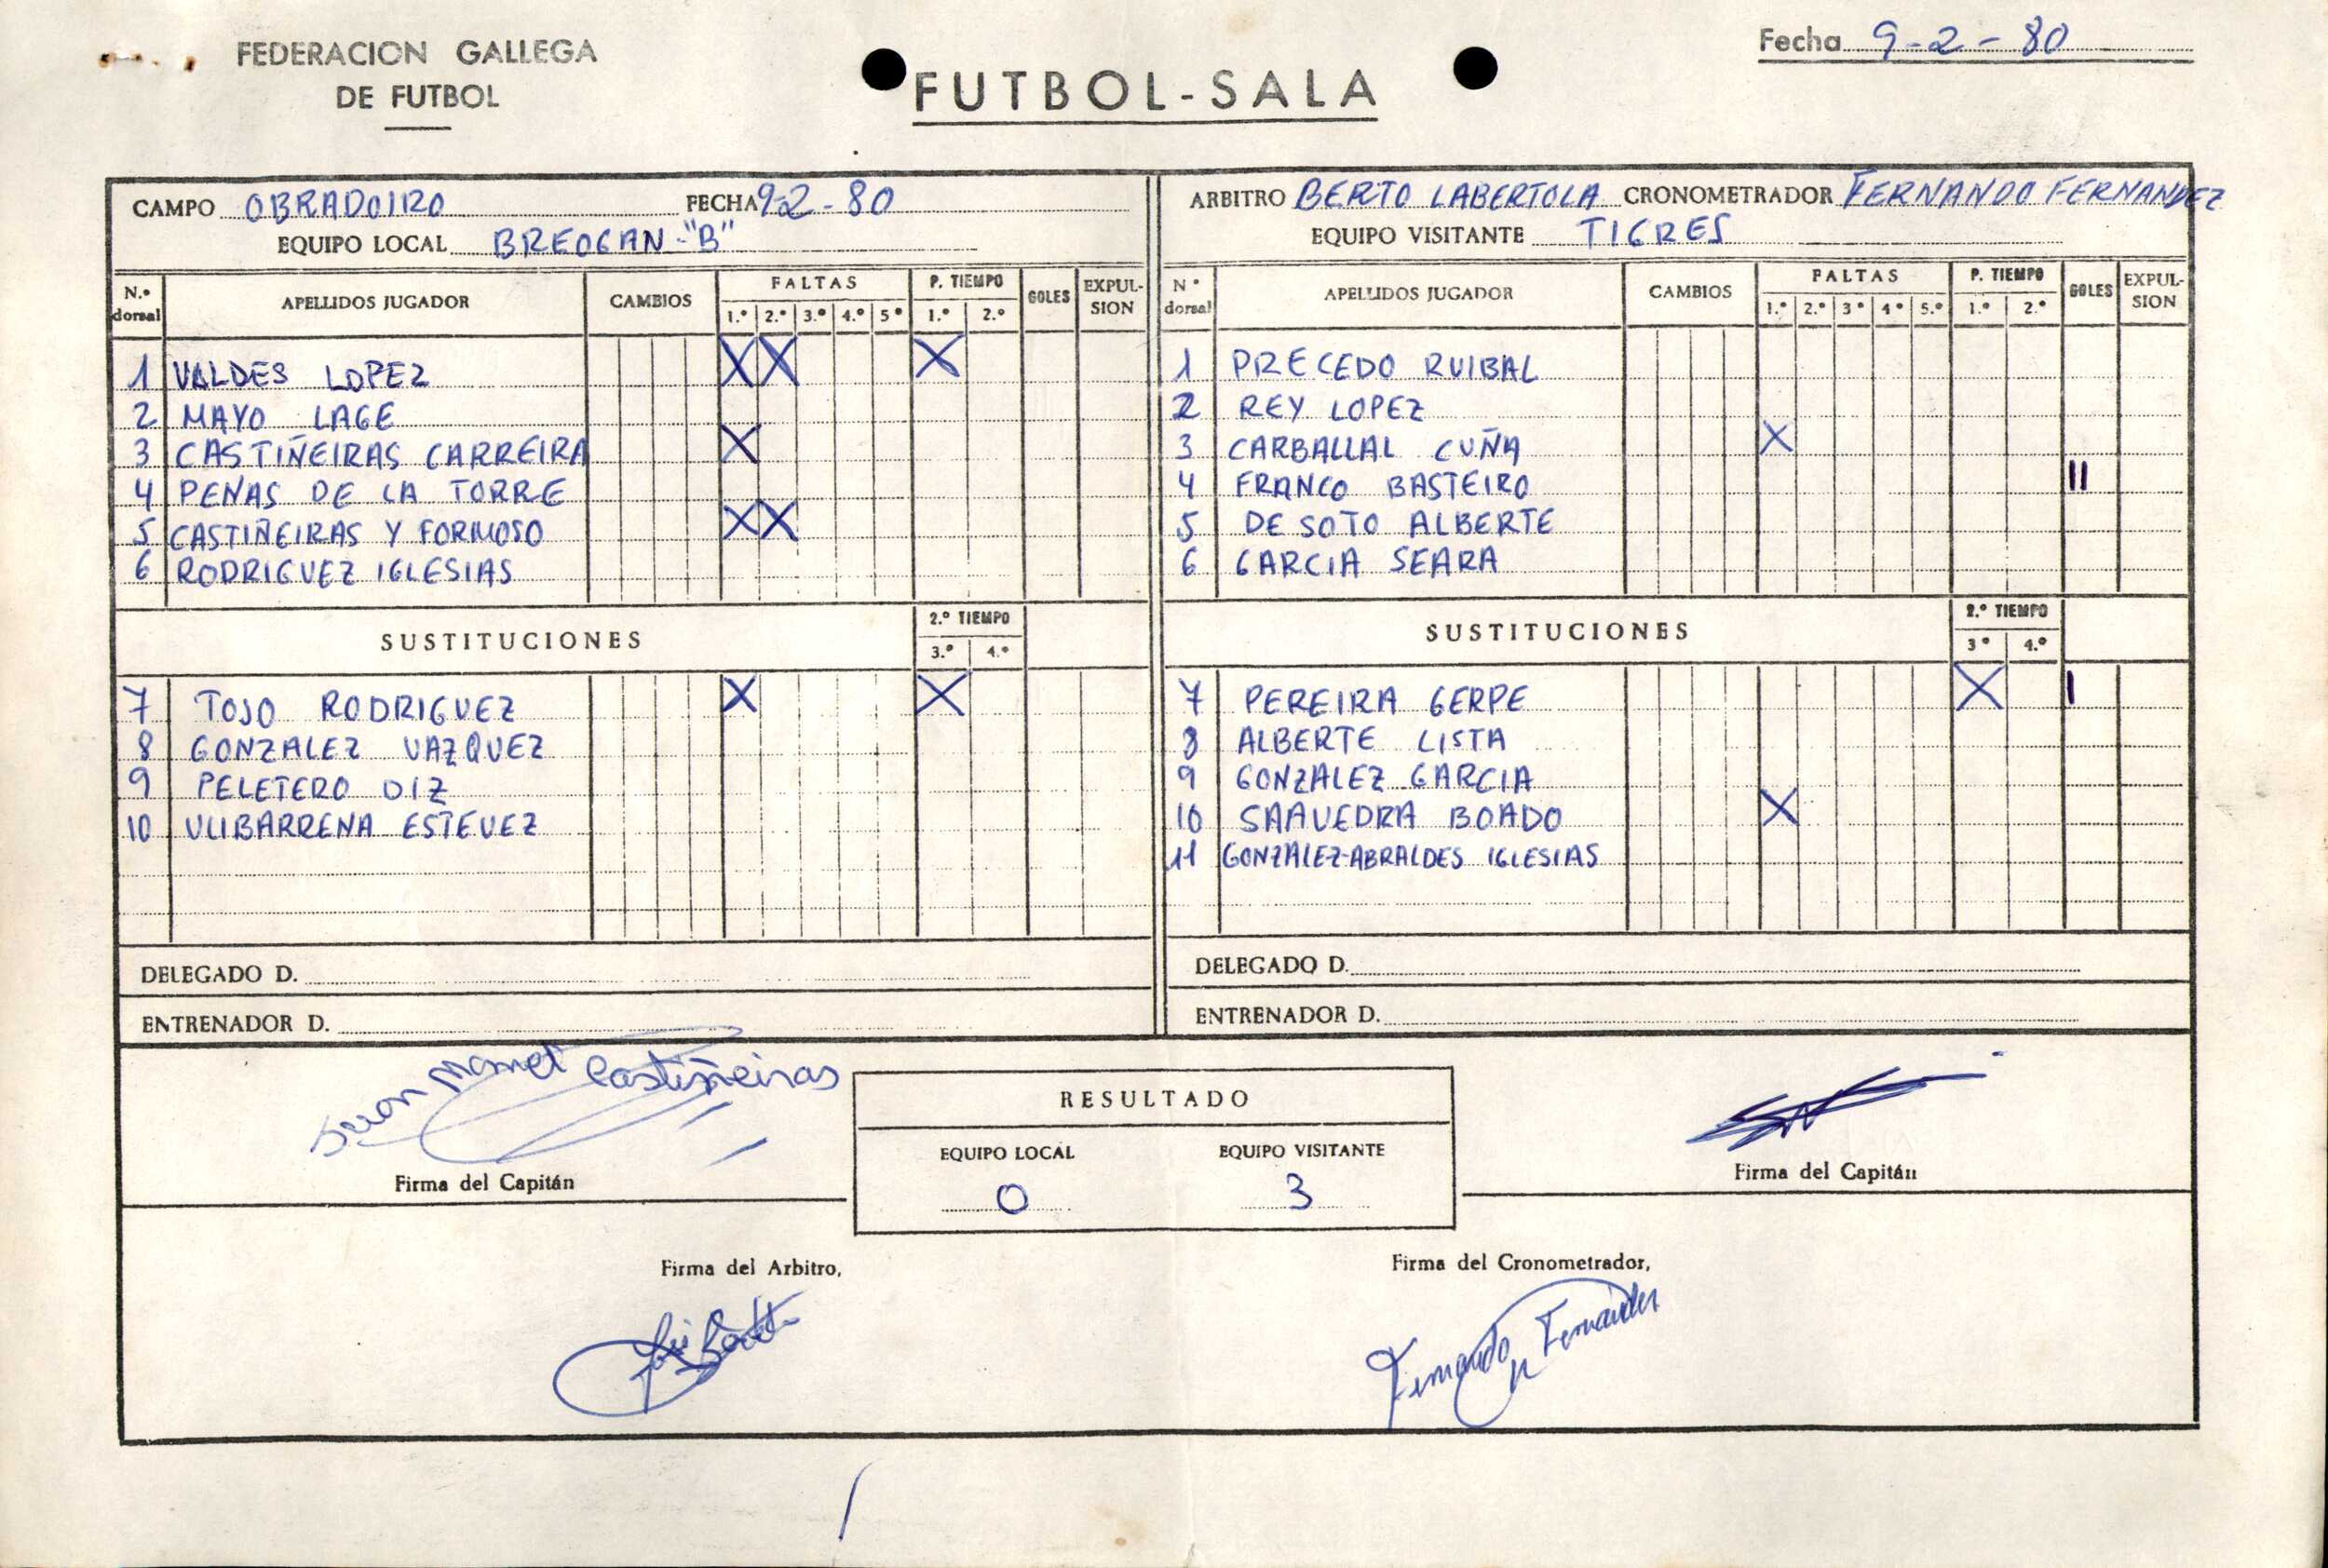 FEDERACION GALLEGA
DE FUTBOL
FUTBOL-SALA
Fecha 9-2-80
CAMPO OBRADOIRO FECHA 9-2-80
EQUIPO LOCAL BREOGAN-"B"
N.º dorsal APELLIDOS JUGADOR CAMBIOS FALTAS 1.º 2.º 3.º 4.º 5º P. TIEMPO 1.º 2.º GOLES EXPULSION
1 VALDES LOPEZ X X X
2 MAYO LAGE
3 CASTIÑEIRAS CARREIRA X
4 PENAS DE LA TORRE
5 CASTIÑEIRAS Y FORMOSO X X
6 RODRIGUEZ IGLESIAS
SUSTITUCIONES 2.º TIEMPO 3.º 4.º
7 TOJO RODRIGUEZ X X
8 GONZALEZ VAZQUEZ
9 PELETERO DIZ
10 ULIBARRENA ESTEVEZ
DELEGADO D.
ENTRENADOR D.
ARBITRO BERTO LABERTOLA CRONOMETRADOR FERNANDO FERNANDEZ
EQUIPO VISITANTE TIGRES
Nº dorsal APELLIDOS JUGADOR CAMBIOS FALTAS 1.º 2.º 3º 4º 5.º P. TIEMPO 1.º 2.º GOLES EXPULSION
1 PRECEDO RUIBAL
2 REY LOPEZ
3 CARBALLAL CUÑA X
4 FRANCO BASTEIRO II
5 DE SOTO ALBERTE
6 GARCIA SEARA
SUSTITUCIONES 2.º TIEMPO 3º 4.º
7 PEREIRA GERPE X I
8 ALBERTE LISTA
9 GONZALEZ GARCIA
10 SAAVEDRA BOADO X
11 GONZALEZ-ABRALDES IGLESIAS
DELEGADO D.
ENTRENADOR D.
Juan Manuel Castiñeiras
Firma del Capitán
RESULTADO
EQUIPO LOCAL EQUIPO VISITANTE
0 3
Firma del Capitán
Firma del Arbitro,
Firma del Cronometrador,
Fernando Fernández